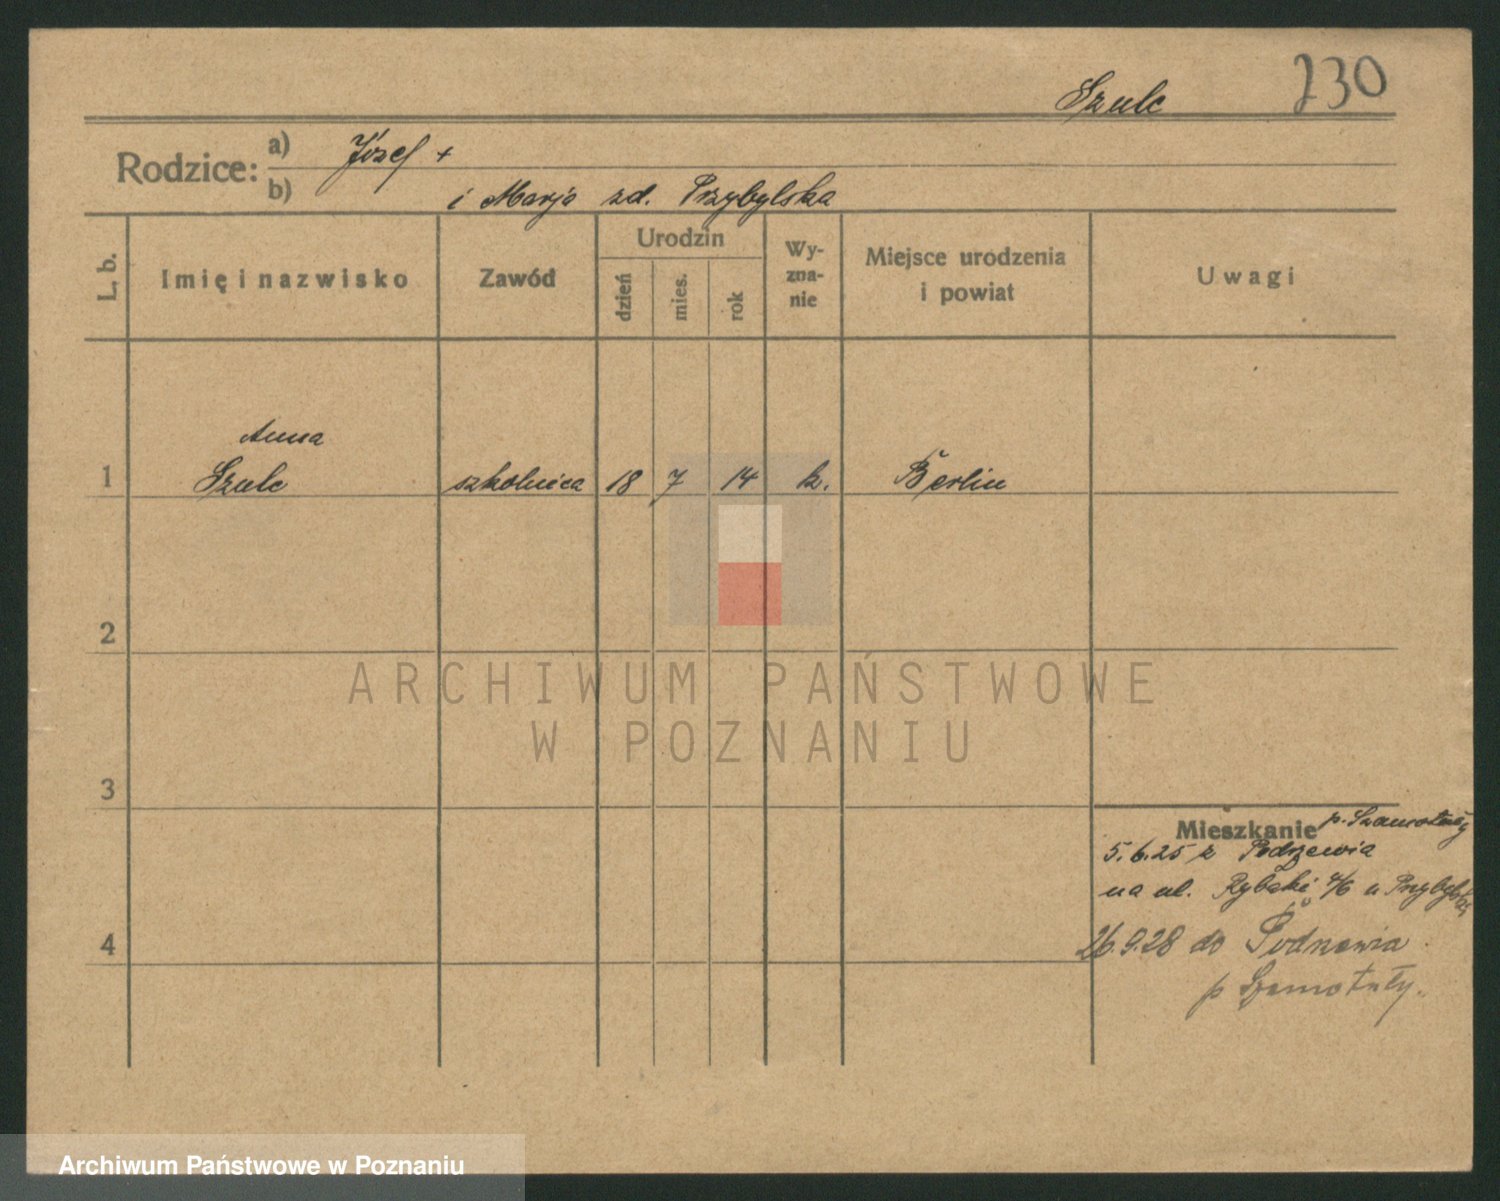 Szulc 230
Rodzice: a) Józef +
b) i Marja zd. Przybylska
L. b.
Imię i nazwisko
Zawód
Urodzin
dzień
mies.
rok
Wy-
zna-
nie
Miejsce urodzenia
i powiat
Uwagi
Anna
1 Szulc szkolnica 18 7 14 k. Berlin
2
3
4
Mieszkanie p. Szamotuły
5.6.25 z Podrzewia
na ul. Rybaki 4/6 u
26.9.28 do Podrzewia
p Szamotuły.
ARCHIWUM PAŃSTWOWE
W POZNANIU
Archiwum Państwowe w Poznaniu